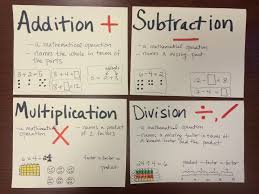 Addition +
- a mathematical operation
- names the whole in terms of the parts
3+2=5
addends
Subtraction
- a mathematical operation
- names a missing part
6-4=2
Multiplication
×
- a mathematical operation
- names a product of 2 factors
6×4=24
factor × factor = product
Division ÷, /
- a mathematical operation
- names a missing factor in terms of a known factor and the product
24÷4=6
product ÷ factor = factor